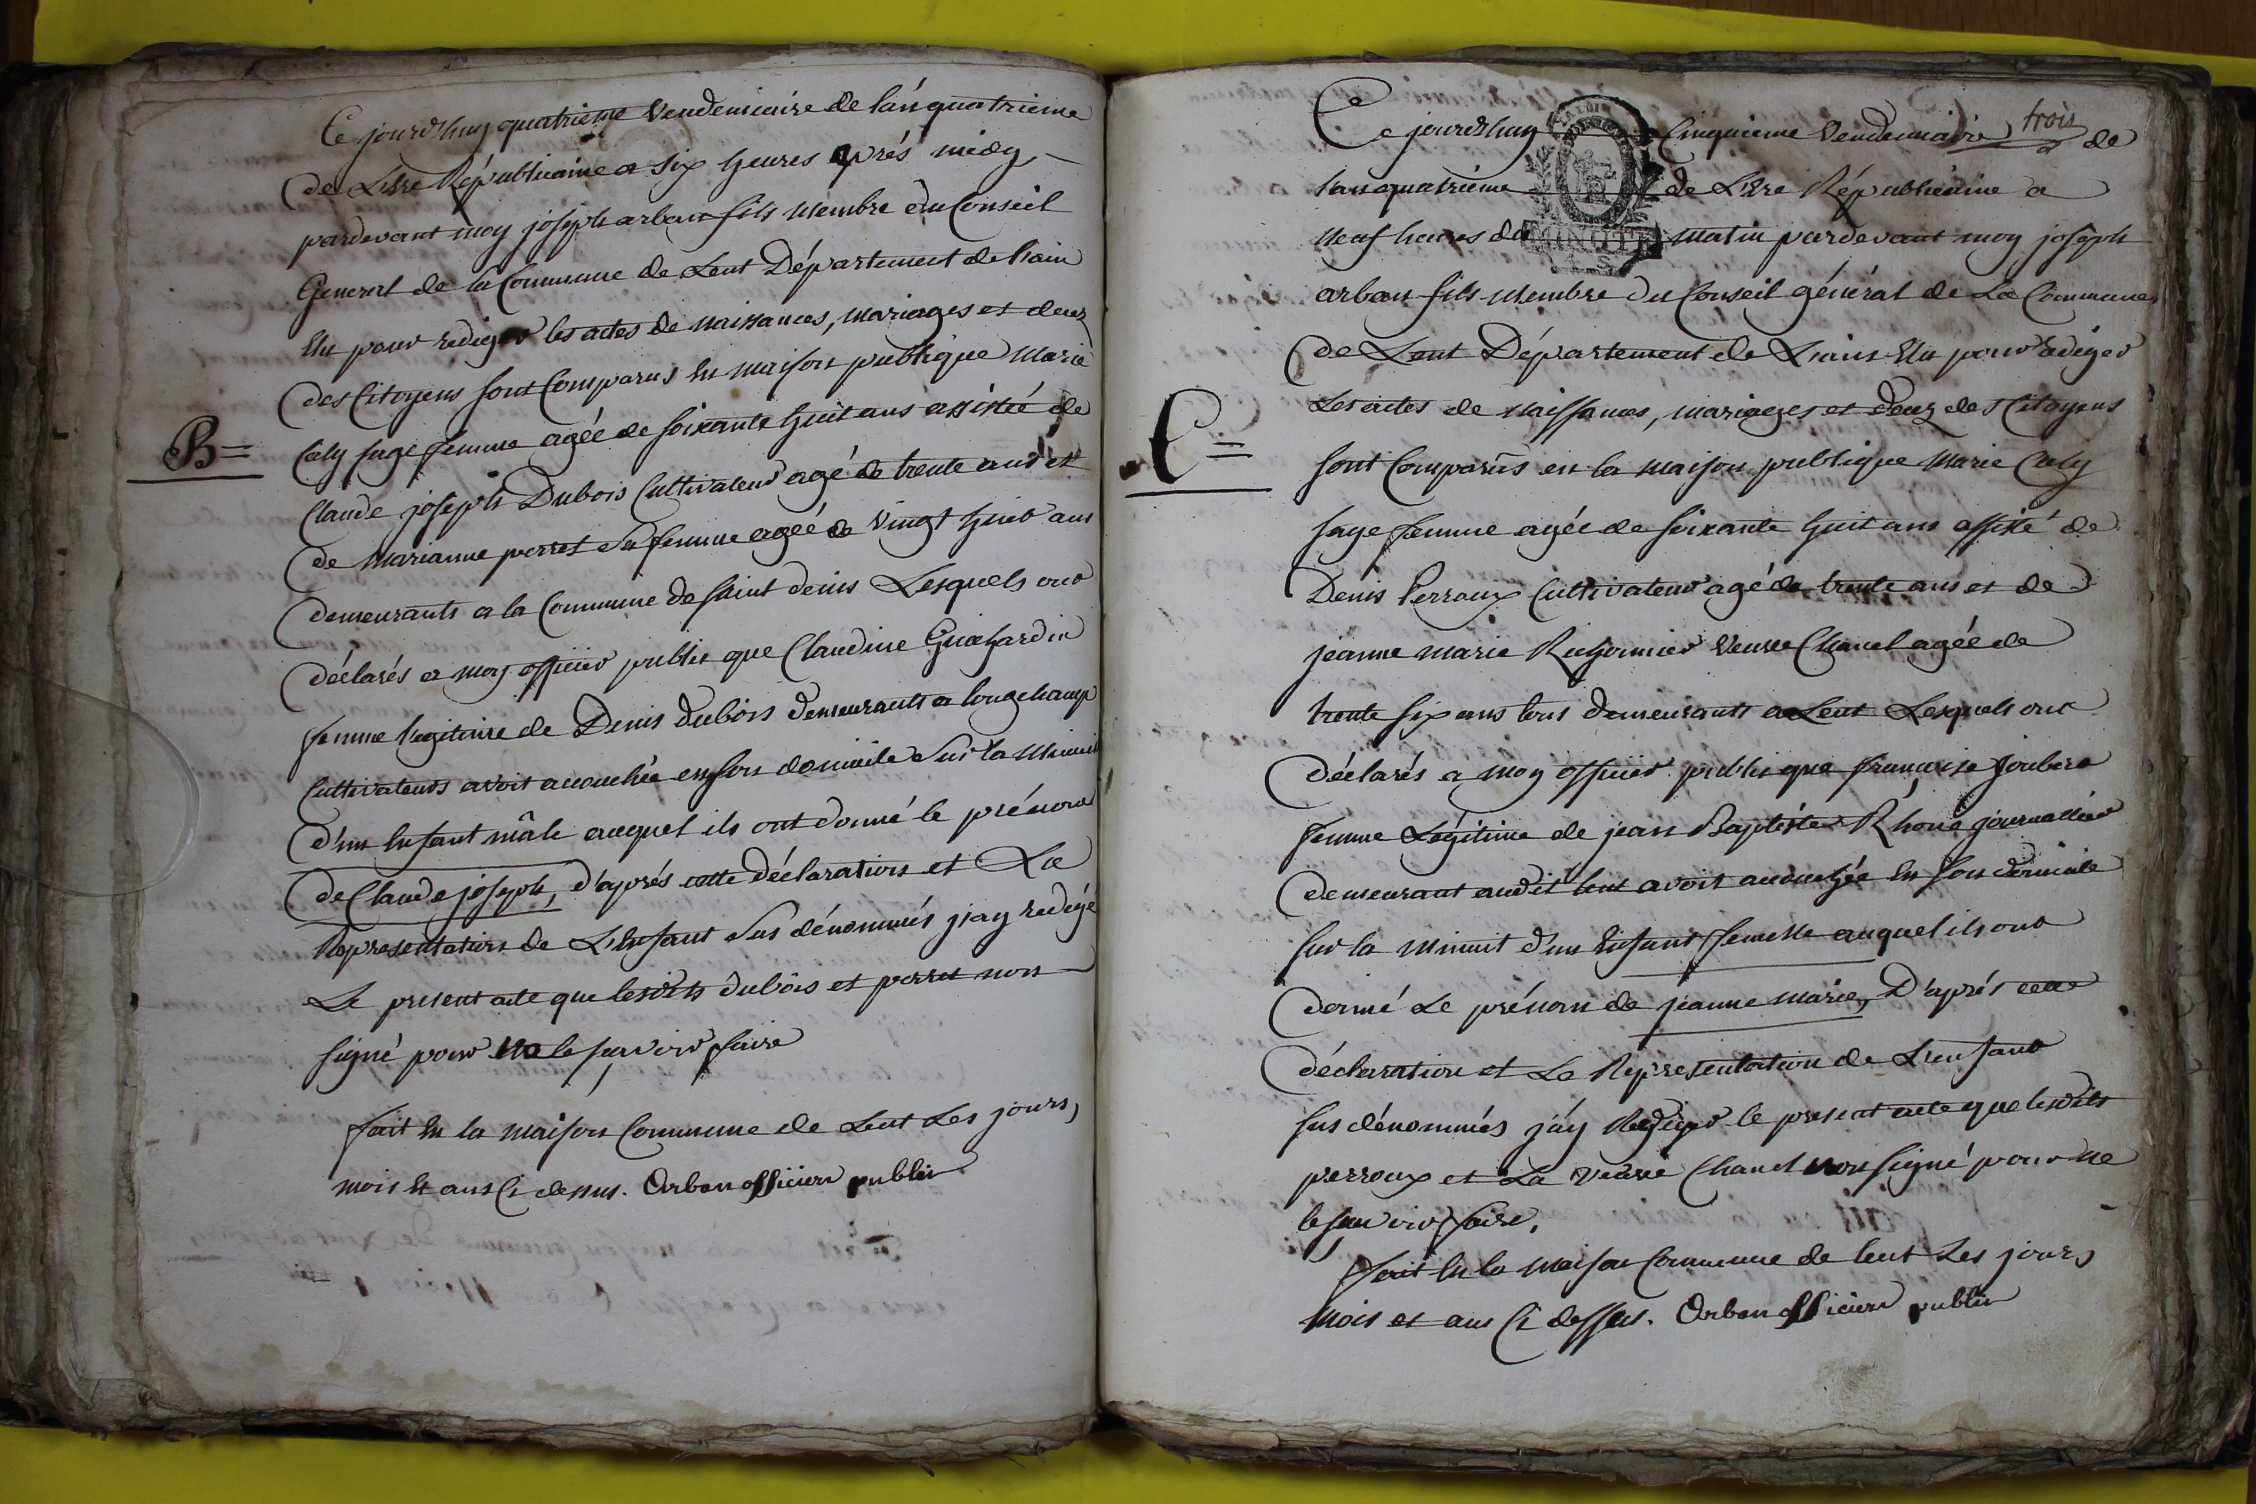 Ce jourdhuy quatrieme Vendemiaire de l'an quatrieme
de L'Ere Républicaine a six heures après midy
pardevant moy joseph arban fils Membre du Conseil
General de la Commune de Lent Département de L'ain
Elu pour rediger les actes de Naissances, Mariages et decez
des Citoyens sont Comparus En maison publique Marie
Caly sage femme agée de soixante huit ans assisté de
B=
Claude joseph Dubois Cultivateur agé de trente ans et
de Marianne perret sa femme agée de Vingt huit ans
demeurants a la Commune de saint denis Lesquels ont
déclarés a moy officier public que Claudine Guichardin
femme legitime de Denis dubois demeurants a longchamp
Cultivateurs avoit accouchée en son domicile sur la Minuit
d'un Enfant mâle auquel ils ont donné le prénom
de Claude joseph, d'après cette déclaration et La
Representation de L'Enfant sus dénommés j'ay redigé
Le present acte que lesdits dubois et perret non
signé pour ne le savoir faire
fait En la maison Commune de Lent Les jours,
mois et ans Ci dessus. Orban officier public
trois
Ce jourdhuy Cinquieme Vendemiaire de
l'an quatrieme de L'Ere Républicaine a
Neuf heures du matin pardevant moy joseph
arban fils Membre du Conseil général de La Commune
de Lent Département de L'ain Elu pour rediger
Les actes de Naissances, mariages et decez des Citoyens
C=
sont Comparûs en la maison publique Marie Caly
sage femme agée de soixante huit ans assisté de
Denis Perroux Cultivateur agé de trente ans et de
jeanne marie Richonnier Veuve Chanel agée de
trente six ans tous demeurants a Lent Lesquels ont
déclarés a moy officier public que françoise joubert
femme Légitime de jean Baptiste Rhone journallier
demeurant audit lent avoit accouchée En son domicile
sur la minuit d'un Enfant femelle auquel ils ont
donné Le prénom de jeanne marie, D'après cette
déclaration et La Representation de L'enfant
sus dénommés j'ay Rediger le present acte que lesdits
perroux et La veuve Chanel non signé pour ne
le savoir faire.
fait En la Maison Commune de lent Les jours
Mois et ans Ci dessus. Orban officier public